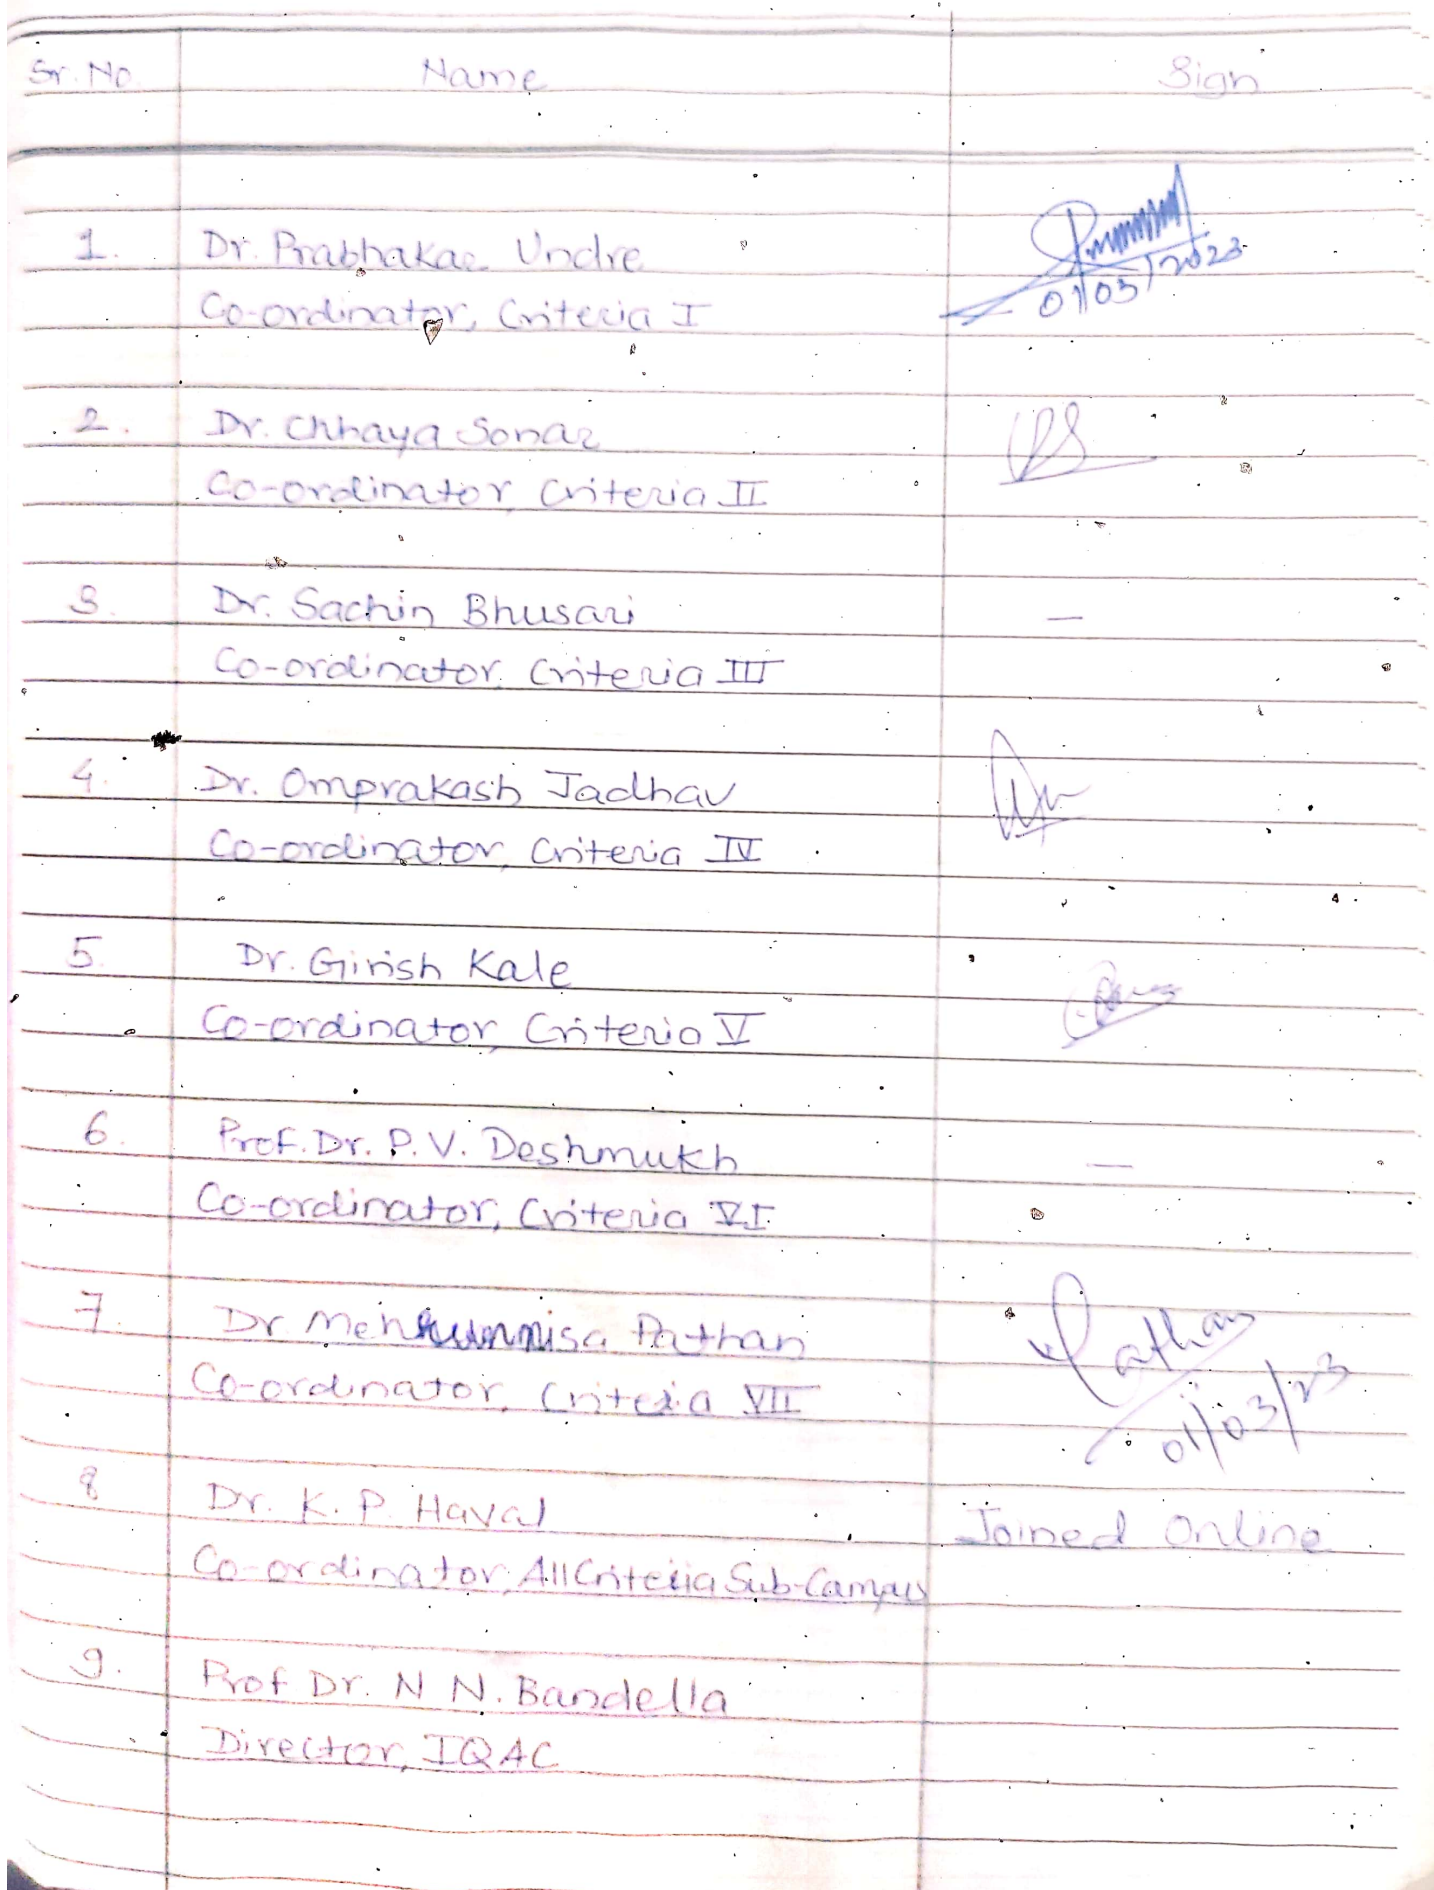 Sr. No. Name Sign
1. Dr. Prabhakar Undre
01/03/2023
Co-ordinator, Criteria I
2. Dr. Chhaya Sonar
Co-ordinator, Criteria II
3. Dr. Sachin Bhusari —
Co-ordinator, Criteria III
4. Dr. Omprakash Jadhav
Co-ordinator, Criteria IV
5. Dr. Girish Kale
Co-ordinator, Criteria V
6. Prof. Dr. P. V. Deshmukh —
Co-ordinator, Criteria VI
7. Dr. Mehrunnisa Pathan Pathan
Co-ordinator, Criteria VII 01/03/23
8 Dr. K. P. Haval Joined Online
Co-ordinator, All Criteria Sub-Campus
9. Prof. Dr. N N. Bandella
Director, IQAC